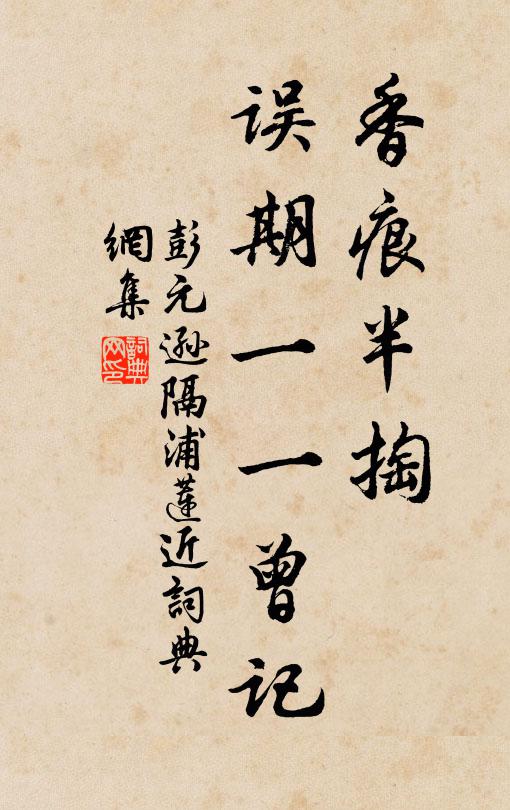 香痕半掏
误期一一曾记
彭元逊隔浦莲近词典
網集
詞典
网印